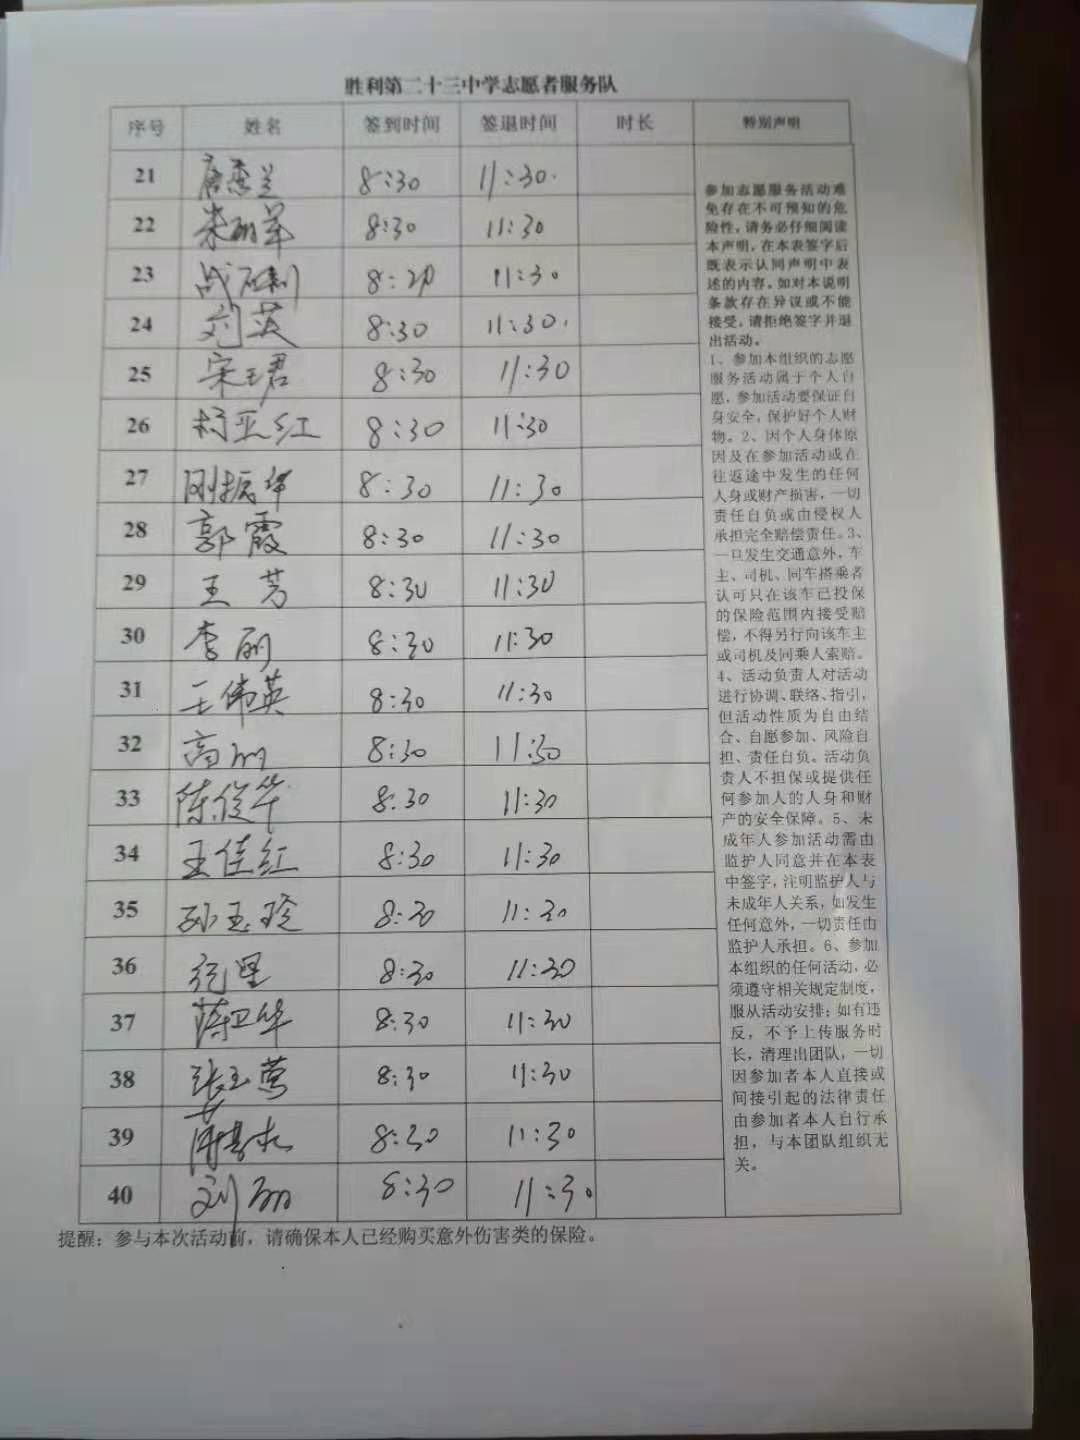 胜利第二十三中学志愿者服务队
序号 姓名 签到时间 签退时间 时长 特别声明
21 8:30 11:30
22 8:30 11:30
23 8:20 11:30
24 刘英 8:30 11:30
25 宋珺 8:30 11:30
26 柯亚红 8:30 11:30
27 刚振华 8:30 11:30
28 郭霞 8:30 11:30
29 王芳 8:30 11:30
30 李丽 8:30 11:30
31 王伟英 8:30 11:30
32 高丽 8:30 11:30
33 陈俊华 8:30 11:30
34 王佳红 8:30 11:30
35 孙玉珍 8:30 11:30
36 8:30 11:30
37 陈卫华 8:30 11:30
38 张玉莺 8:30 11:30
39 8:30 11:30
40 刘丽 8:30 11:30
参加志愿服务活动难
免存在不可预知的危
险性,请务必仔细阅读
本声明,在本表签字后
既表示认同声明中表
述的内容。如对本说明
条款存在异议或不能
接受,请拒绝签字并退
出活动。
1、参加本组织的志愿
服务活动属于个人自
愿,参加活动要保证自
身安全,保护好个人财
物。2、因个人身体原
因及在参加活动或在
往返途中发生的任何
人身或财产损害,一切
责任自负或由侵权人
承担完全赔偿责任。3、
一旦发生交通意外,车
主、司机、同车搭乘者
认可只在该车已投保
的保险范围内接受赔
偿,不得另行向该车主
或司机及同乘人索赔。
4、活动负责人对活动
进行协调、联络、指引,
但活动性质为自由结
合、自愿参加、风险自
担、责任自负。活动负
责人不担保或提供任
何参加人的人身和财
产的安全保障。5、未
成年人参加活动需由
监护人同意并在本表
中签字,注明监护人与
未成年人关系,如发生
任何意外,一切责任由
监护人承担。6、参加
本组织的任何活动,必
须遵守相关规定制度,
服从活动安排;如有违
反,不予上传服务时
长,清理出团队,一切
因参加者本人直接或
间接引起的法律责任
由参加者本人自行承
担,与本团队组织无
关。
提醒:参与本次活动前,请确保本人已经购买意外伤害类的保险。